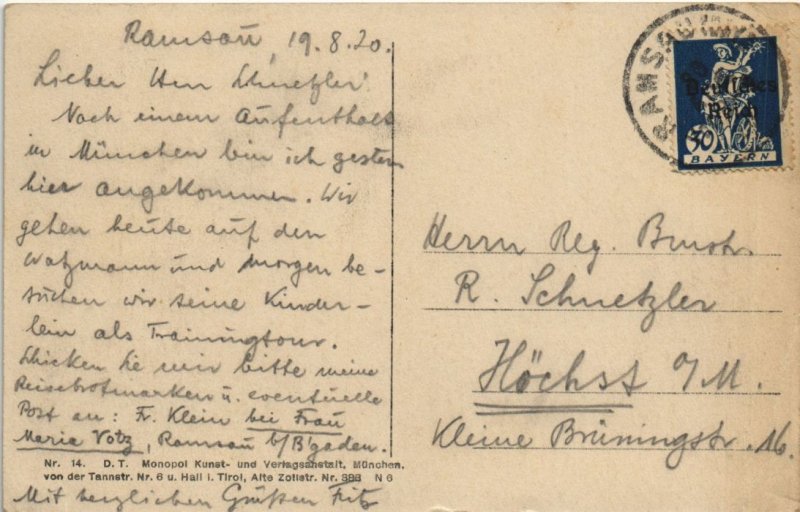 Ramsau, 19.8.20.
Lieber Herr Schnetzler!
Nach einem Aufenthalt
in München bin ich gestern
hier angekommen. Wir
gehen heute auf den
Watzmann und morgen be-
suchen wir seine Kinder-
lein als Trainingtour.
Schicken Sie mir bitte meine
Reisebrotmarken u. eventuelle
Post an: Fr. Klein bei Frau
Maria Votz, Ramsau b/B'gaden.
Nr. 14. D. T. Monopol Kunst- und Verlagsanstalt, München,
von der Tannstr. Nr. 6 u. Hall i. Tirol, Alte Zollstr. Nr. 388 N 6
Mit herzlichen Grüßen Fritz
RAMSAU
Deutsches
Reich
30
BAYERN
Herrn Reg. Bmstr.
R. Schnetzler
Höchst a/M.
Kleine Brüningstr. 16.